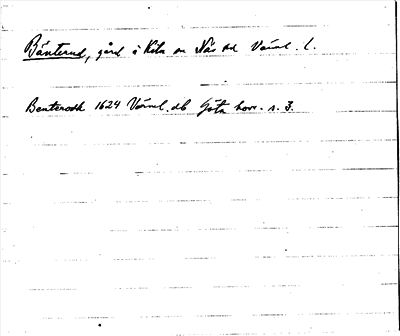 Bänterud, gård i Kila sn Näs hd Värml. l.
Benterodh 1624 Värml. db Göta hovr. s. 3.